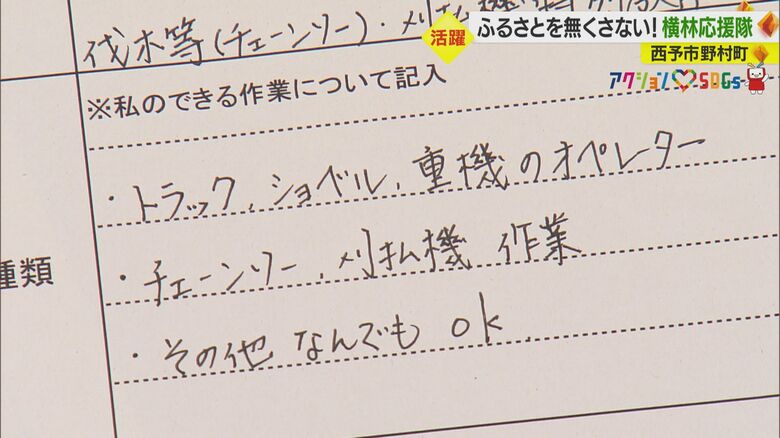 活躍
ふるさとを無くさない!横林応援隊
西予市野村町
アクション SDGs
伐木等(チェーンソー)・刈払機
※私のできる作業について記入
・トラック、ショベル、重機のオペレーター
・チェーンソー、刈払機 作業
種類
・その他 なんでも ok